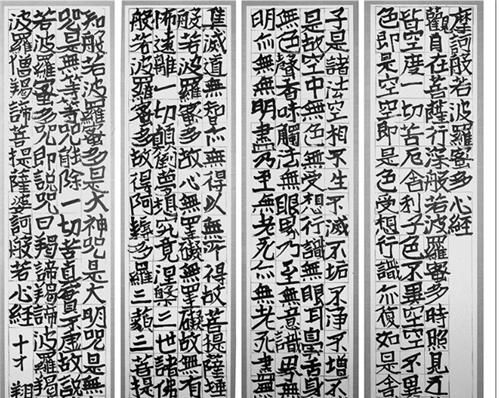 摩訶般若波羅蜜多心經
觀自在菩薩行深般若波羅蜜多時照見五
皆空度一切苦厄舍利子色不異空空不異
色即是空空即是色受想行識亦復如是舍
子是諸法空相不生不滅不垢不淨不增不
是故空中無色無受想行識無眼耳鼻舌身
無色聲香味觸法無眼界乃至無意識界無
明亦無無明盡乃至無老死亦無老死盡
集滅道無智亦無得以無所得故菩提薩埵
般若波羅蜜多故心無罣礙無罣礙故無有
怖遠離一切顛倒夢想究竟涅槃三世諸佛
般若波羅蜜多故得阿耨多羅三藐三菩提
知般若波羅蜜多是大神咒是大明咒是無
咒是無等等咒能除一切苦真實不虛故說
若波羅蜜多咒即說咒曰羯諦羯諦波羅羯
波羅僧羯諦菩提薩婆訶般若心經 十才 翔